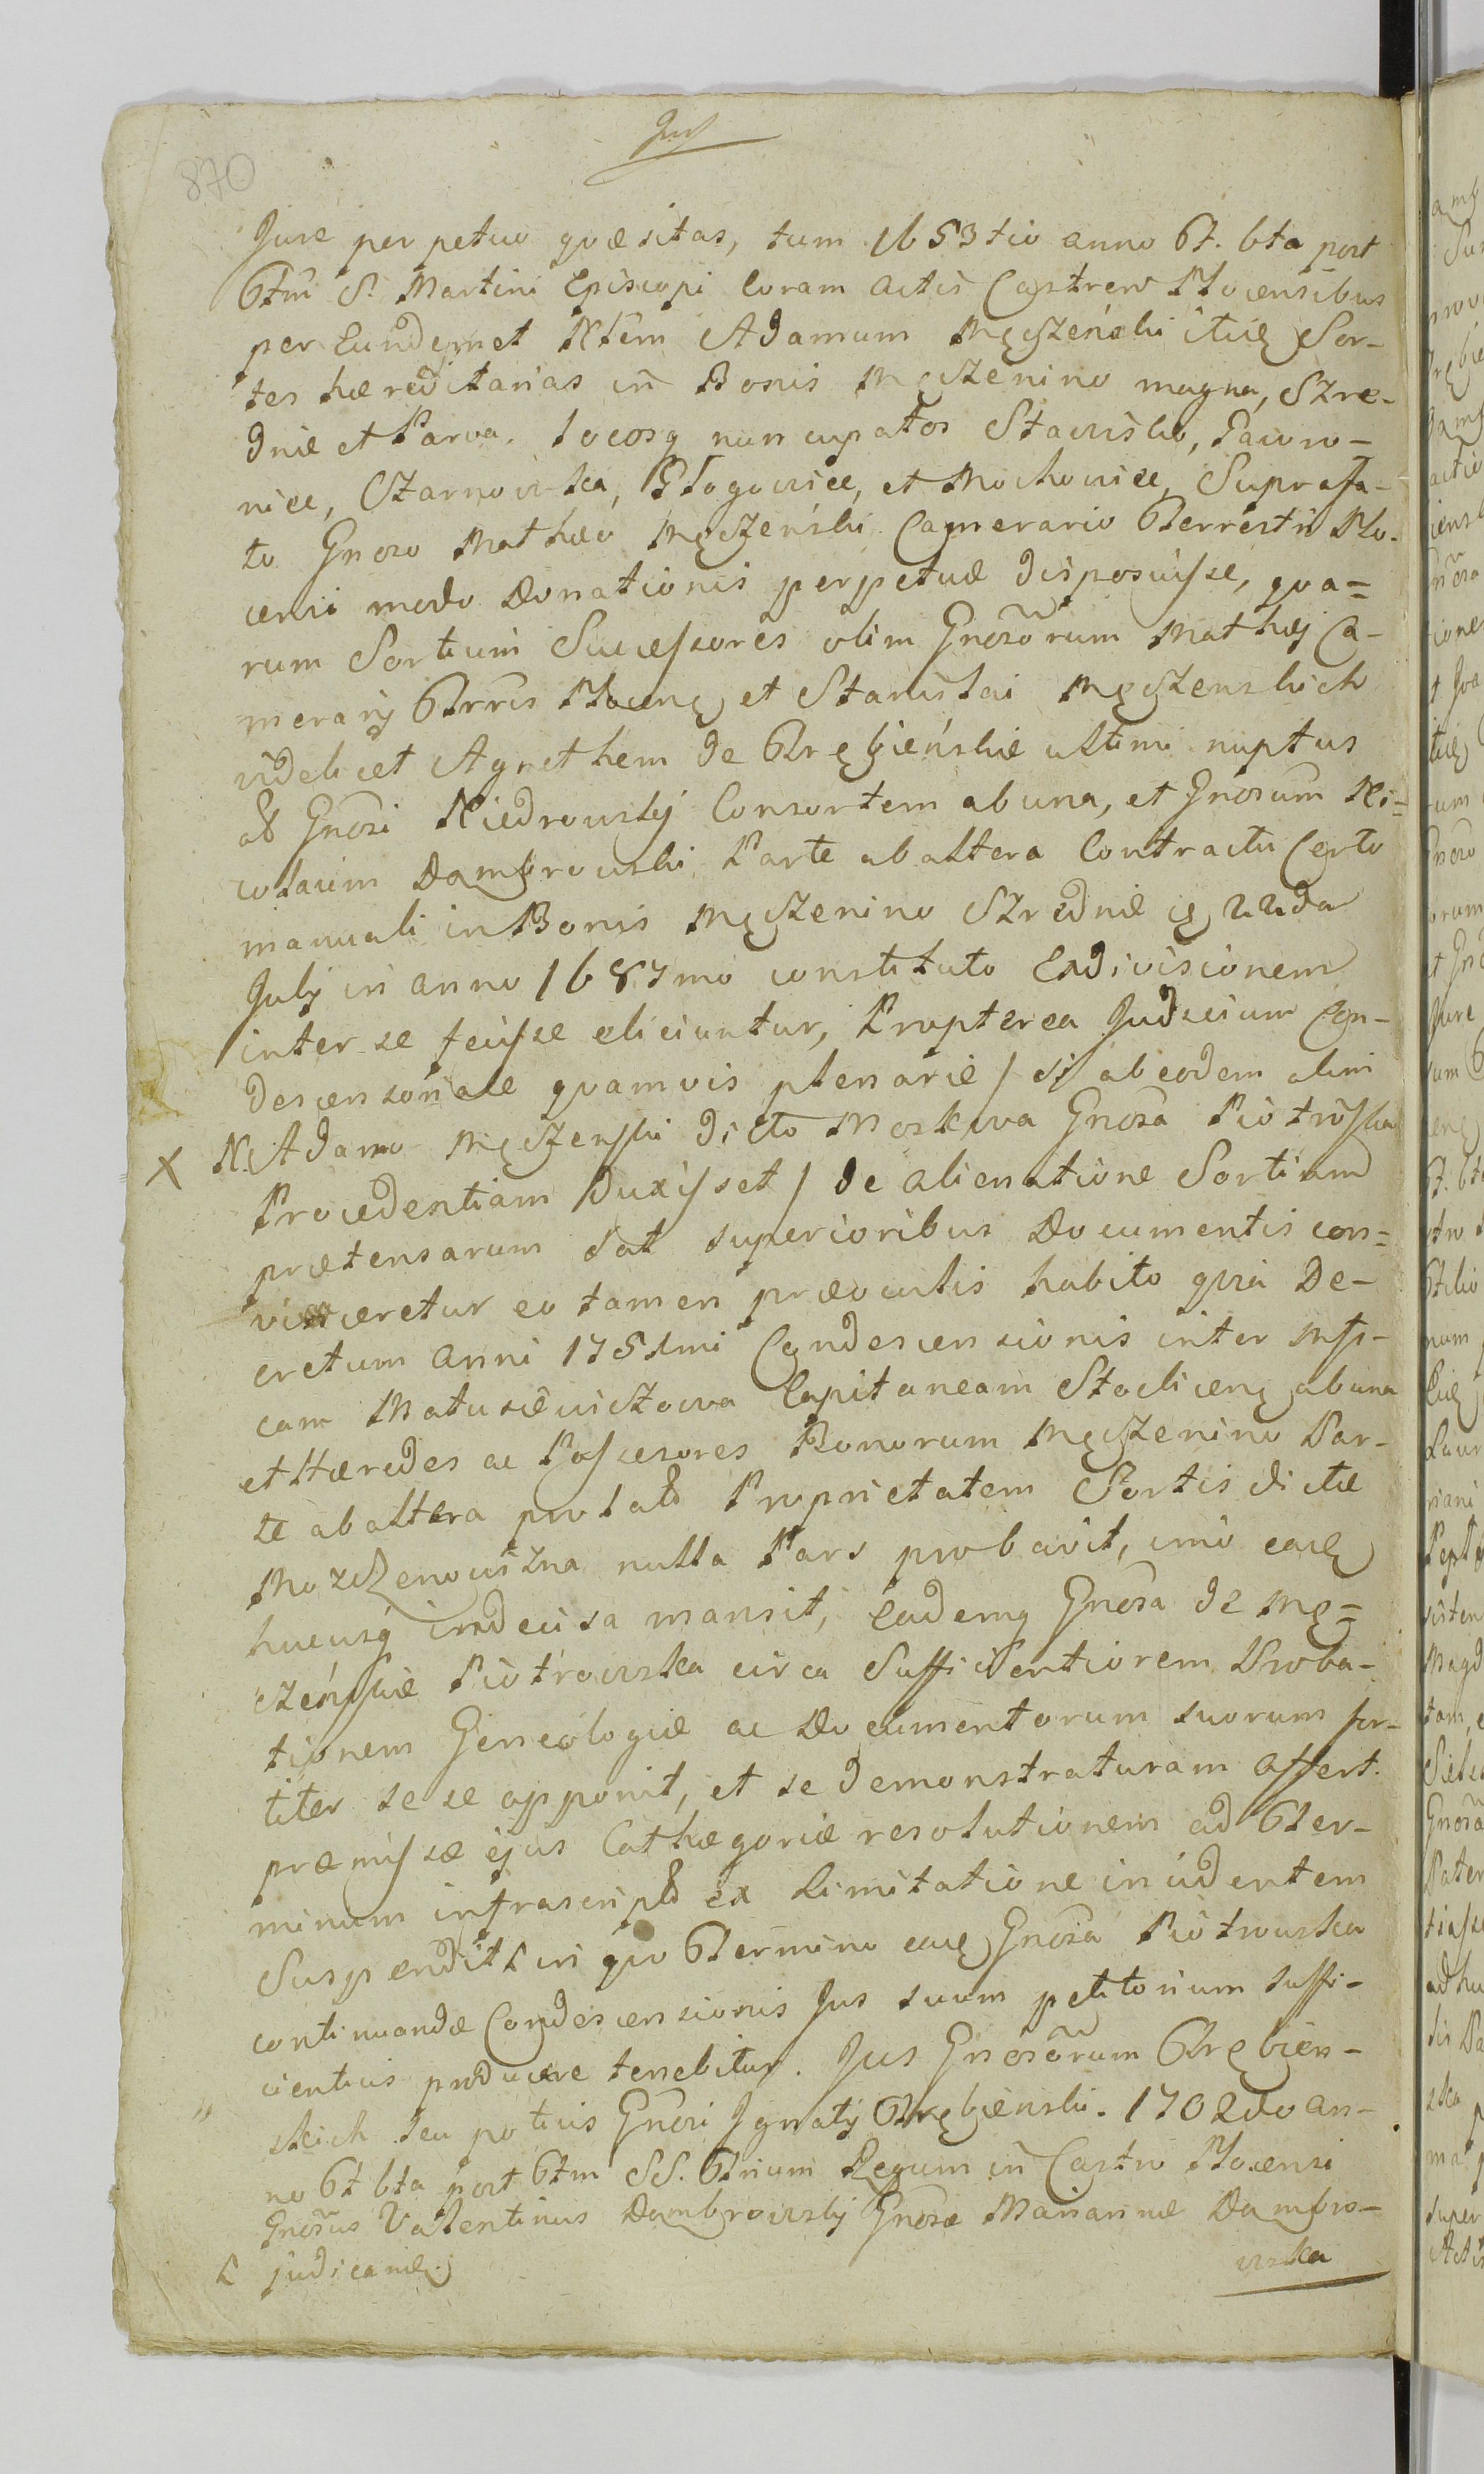 Jus
870
Jure perpetuo quæsitas, tum 1653tio anno Ft. 6ta post
Ftm S. Martini Episcopi Coram actis Castren Plocensibus
per Eundemet Nlem Adamum Męczeński itie Sor-
tes hæreditarias in Bonis Męczenino magna, Szre-
dnie et Parva, locosq nuncupatos Stawisko, Pawro-
nice, Czarnowska, Głogowice, et Mochowice, Suprafa-
to Gnoso Mathæo Męczeński Camerario Terrestri Plo-
censi modo Donationis perpetuæ disposuisse, qva=
rum Sortium Successores olim Gnosorum Mathej Ca-
merarij Trris Plocen et Stanislai Męczenskich
videlicet Agnethem de Trębieńskie ultimi nuptus
ab Gnosi Niedrowskij Consortem ab una, et Gnosum Ni=
colaum Dambrowski Parte ab altera Contractu Certo
manuali in Bonis Męczenino Szrednie 22da
July in anno 1687mo constituto Exdivisionem
inter se fecisse eliciuntur, Propterea Judicium Con-
descensoriale qvamvis plenarie / si ab eodem olim
X N. Adamo Męczenski dicto Moskwa Gnosa Piotroska
Procedentiam Duxisset / de alienatione Sortium
prætensarum sat superioribus Documentis con=
vinceretur eo tamen præoculis habito qvia De-
cretum anni 1751mi Condescensionis inter Mfi-
cam Matusiewiczowa Capitaneam Stoclicen ab una
et Hæredes ac Possesores Bonorum Męczenino Par-
te ab altera prolatd Proprietatem Sortis dictæ
Mozdzenowszna nulla Pars probavit, imo eaq
hucusq indecisa mansit, eademq Gnosa de Mę=
czeńskie Piotrowska circa Sufficientiorem Proba-
tionem Geneologiæ ac Documentorum suorum for-
titer se se opponit, et se demonstraturam assert.
præmissæ ejus Cathegoriæ resolutionem ad Ter-
minum infrascriptd ex Limitatione incidentem
Suspendit L in qvo Termino eaq Gnosa Piotrowska
continuandæ Condescensionis Jus suum petitorium suffi-
cientius producere tenebitur. Jus Gnosorum Trębien-
skich seu potius Gnosi Jgnatij Trębienski. 1702do an-
no Ft 6ta post Ftm SS. Trium Regum in Castro Plocensi
Gnosus Valentinus Dambrowskij Gnosæ Mariannæ Dambro-
wska
L judicande.